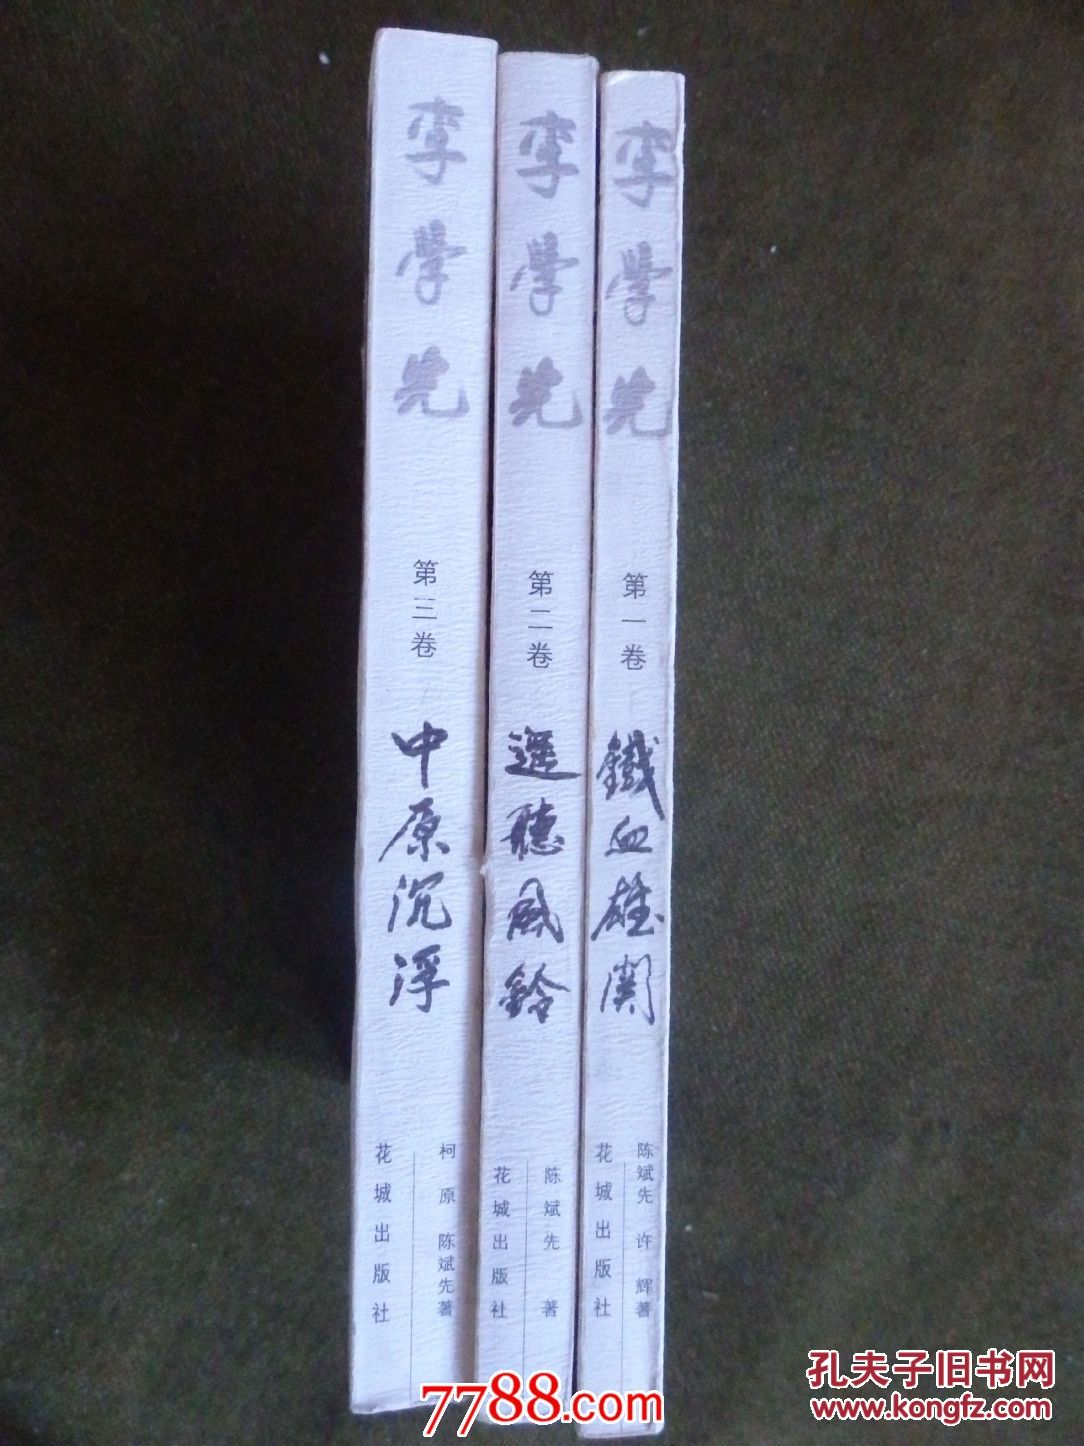 李學先
第三卷
中原沉浮
柯原 陈斌先著
花城出版社
李學先
第二卷
遥聽风鈴
陈斌先 著
花城出版社
李學先
第一卷
鐵血雄関
陈斌先 许辉著
花城出版社
7788.com
孔夫子旧书网
www.kongfz.com